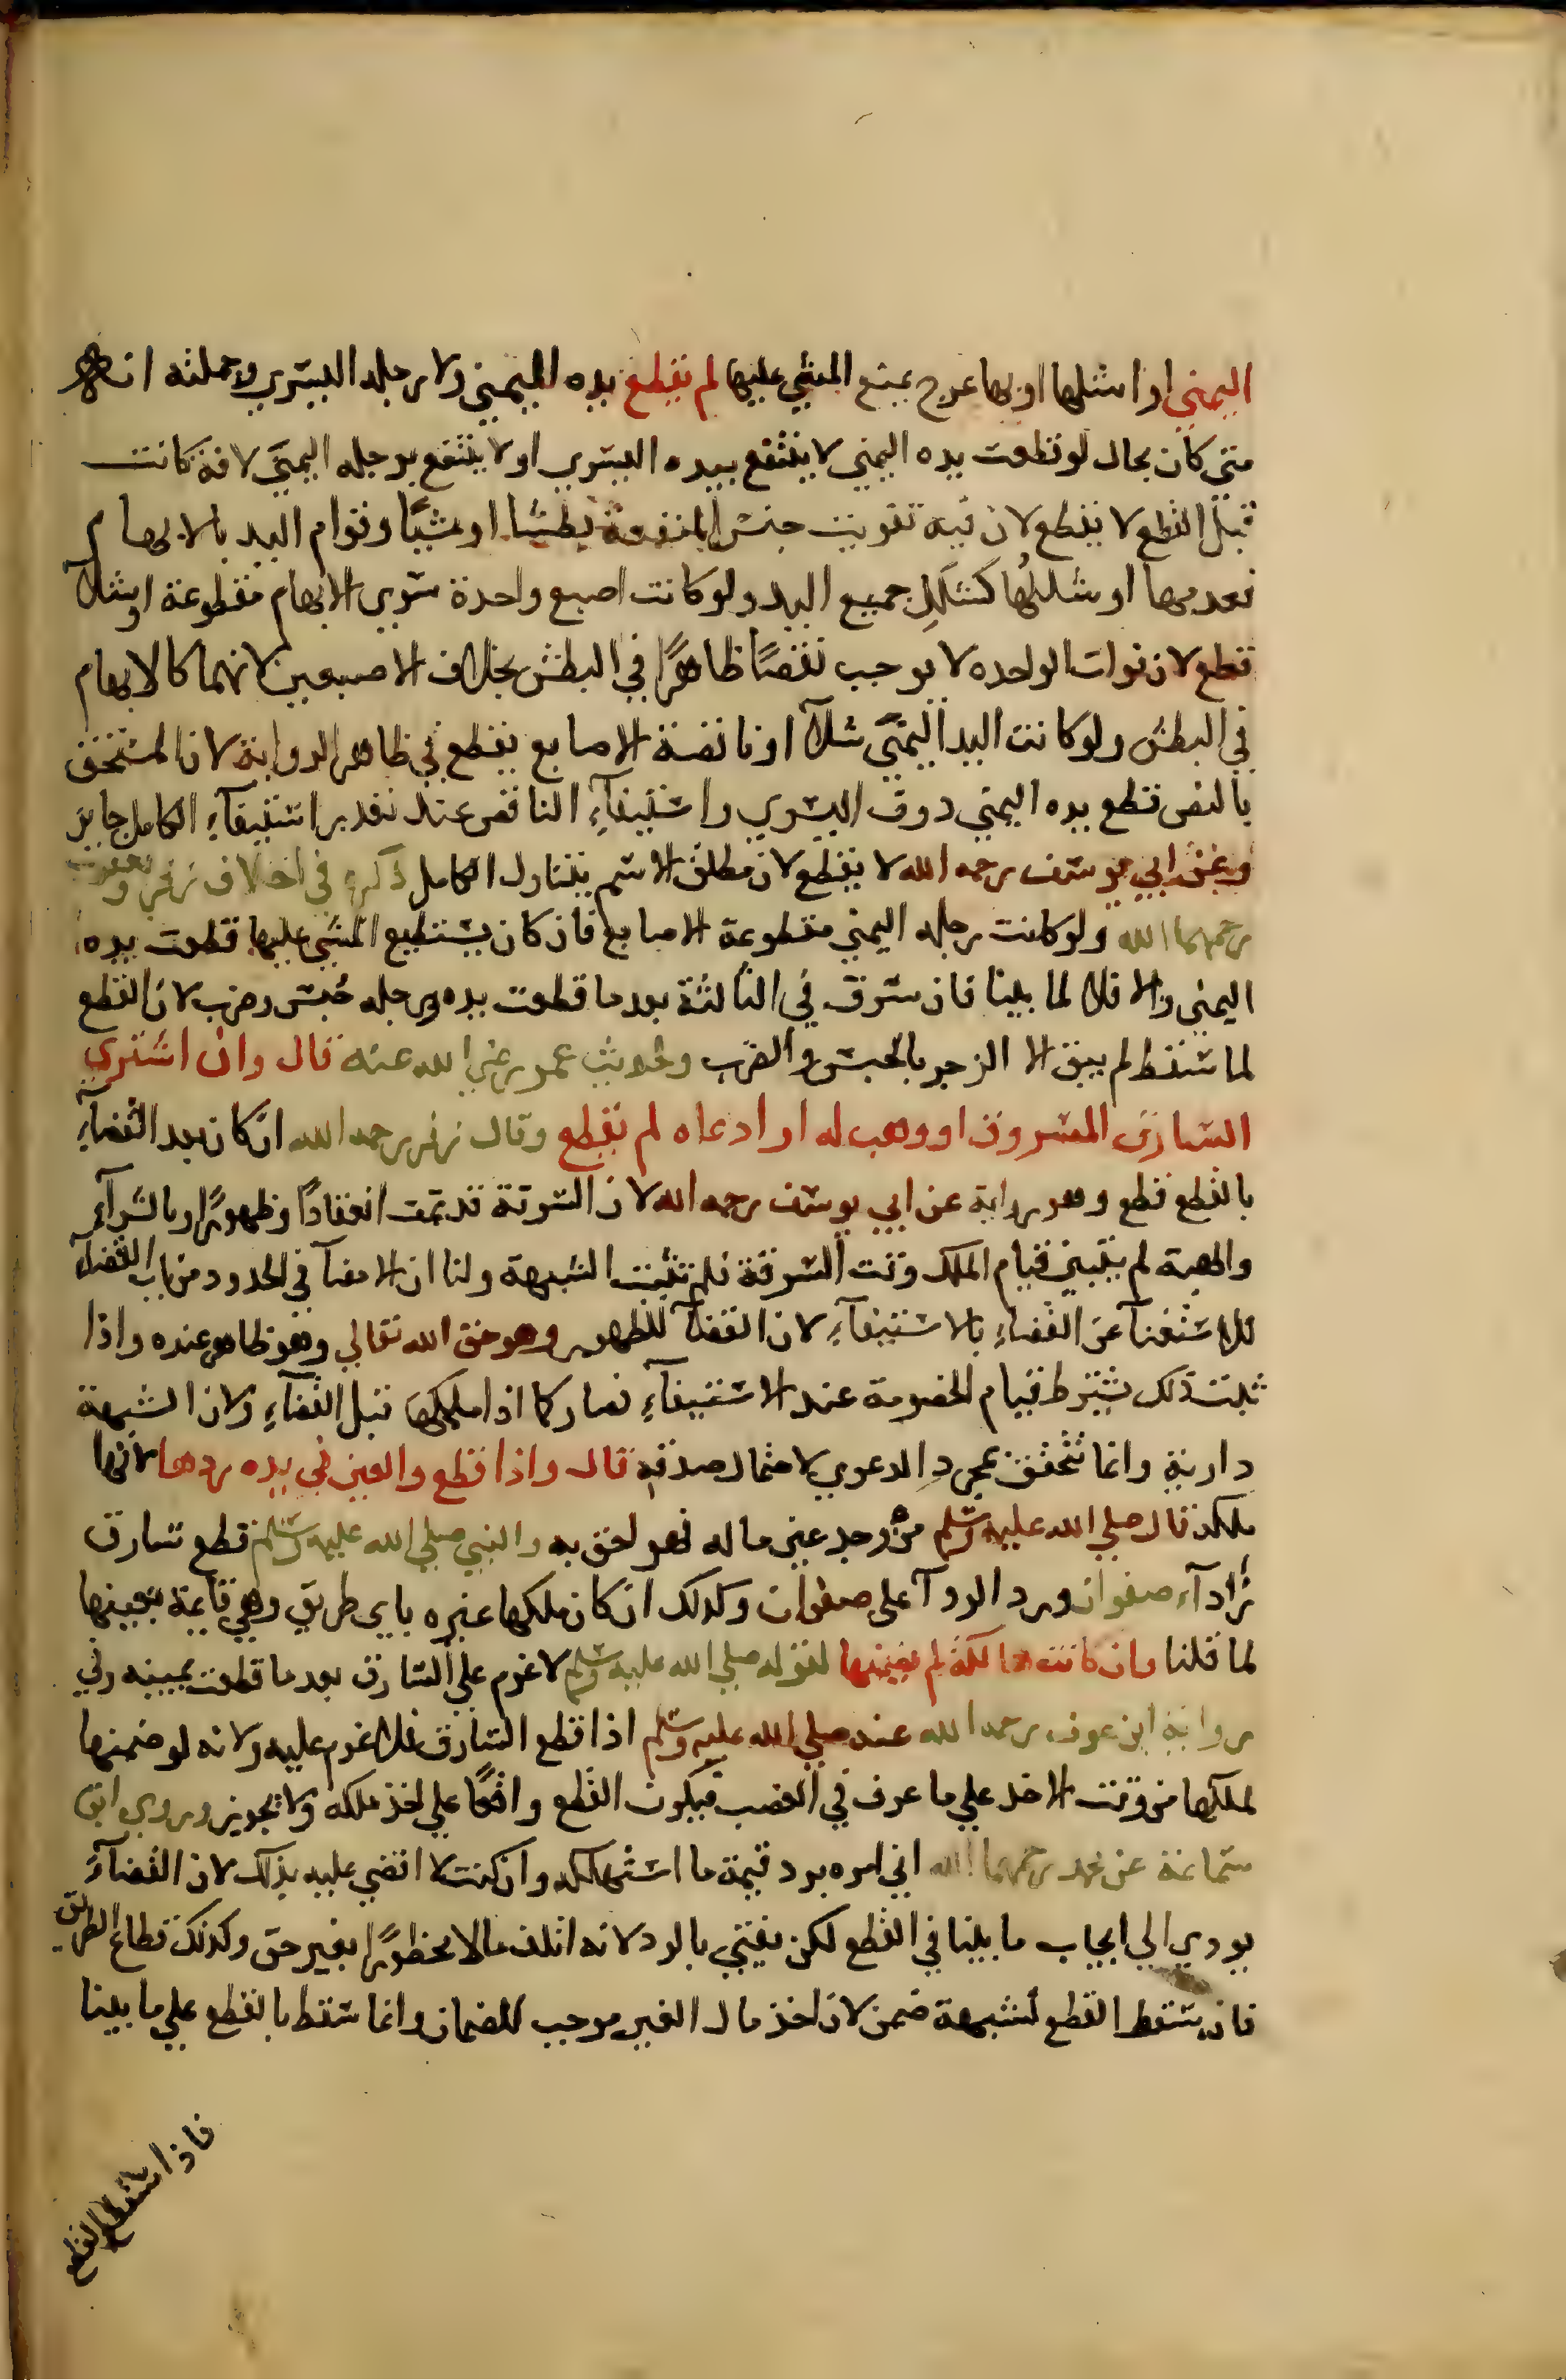 اليمني او اشلها او بها عرج يمنع المشي عليها لم نقطع يده اليمني ولا رجله اليسري وجملته انه
متي كان بحال لو قطعت يده اليمني لا ينتفع بيده اليسري او لا ينتفع برجله اليمني لافة كانت
قبل القطع لا يقطع لان فيه تفويت جنس المنفعة بطشا او مشيا وقوام اليد بالابهام
فعدمها او شللها كشلل جميع اليد ولو كانت اصبع واحدة سوي الابهام مقطوعة او شلآ
قطع لان فوات الواحده لا يوجب نقصا ظاهرا في البطش بخلاف الاصبعين لانهما كالابهام
في البطش ولو كانت اليد اليمني شلآ او ناقصة الاصابع يقطع في ظاهر الرواية لان المستحق
بالنص قطع يده اليمني دون اليسري واستيفآء الناقص عند تعذر استيفآء الكامل جايز
وعن ابي يوسف رحمه الله لا يقطع لان مطلق الاسم يتناول الكامل ذكره في اختلاف زفر ويعقوب
رحمهما الله ولو كانت رجله اليمني مقطوعة الاصابع فان كان يستطيع المشي عليها قطعت يده
اليمني والا فلا لما بينا فان سرق في الثالثة بعد ما قطعت يده ورجله حبس وضرب لان القطع
لما سقط لم يبق الا الزجر بالحبس والضرب ولحديث عمر رضي الله عنه قال وان اشتري
السارق المسروق او وهب له او ادعاه لم نقطع وقال زفر رحمه الله ان كان بعد القضآء
بالقطع قطع وهو رواية عن ابي يوسف رحمه الله لان السرقة قد تمت انعقادا وظهورا وبالشرآء
والهبة لم يتبين قيام الملك وقت السرقة فلم تثبت الشبهة ولنا ان الامضآ في الحدود من باب القضآء
للاستغنآ عن القضاء بالاستيفآء لان القضآ للظهور وهو حق الله تعالي وهو ظاهر عنده واذا
ثبت ذلك يشترط قيام الخصومة عند الاستيفآء فصار كما اذا ملكها قبل القضآء ولان الشبهة
دارية وانما تتحقق بمجرد الدعوي لاحتمال صدقه قال واذا قطع والعين في يده ردها لانها
ملكه قال صلي الله عليه وسلم من وجد عين ماله فهو احق به والنبي صلي الله عليه وسلم قطع سارق
ردآء صفوان ورد الردآ علي صفوان وكذلك ان كان ملكها غيره باي طريق وهي قايمة بعينها
لما قلنا وان كانت هالكة لم يضمنها لقوله صلي الله عليه وسلم لا غرم علي السارق بعد ما قطعت يمينه وفي
رواية ابن عوف رحمه الله عنه صلي الله عليه وسلم اذا قطع السارق فلا غرم عليه ولانه لو ضمنها
لملكها من وقت الاخذ علي ما عرف في الغصب فيكون القطع واقعا علي اخذ ملكه ولا يجوز وروي ابن
سماعة عن محمد رحمهما الله اني امره برد قيمة ما استهلكه وان كنت لا اقضي عليه بذلك لان القضآء
يودي الي ايجاب ما بينا في القطع لكن يفتي بالرد لانه اتلف مالا محظورا بغير حق وكذلك قطاع الطريق
فان سقط القطع لشبهة ضمن لان اخذ مال الغير موجب للضمان وانما سقط بالقطع علي ما بينا
فاذا سقط القطع